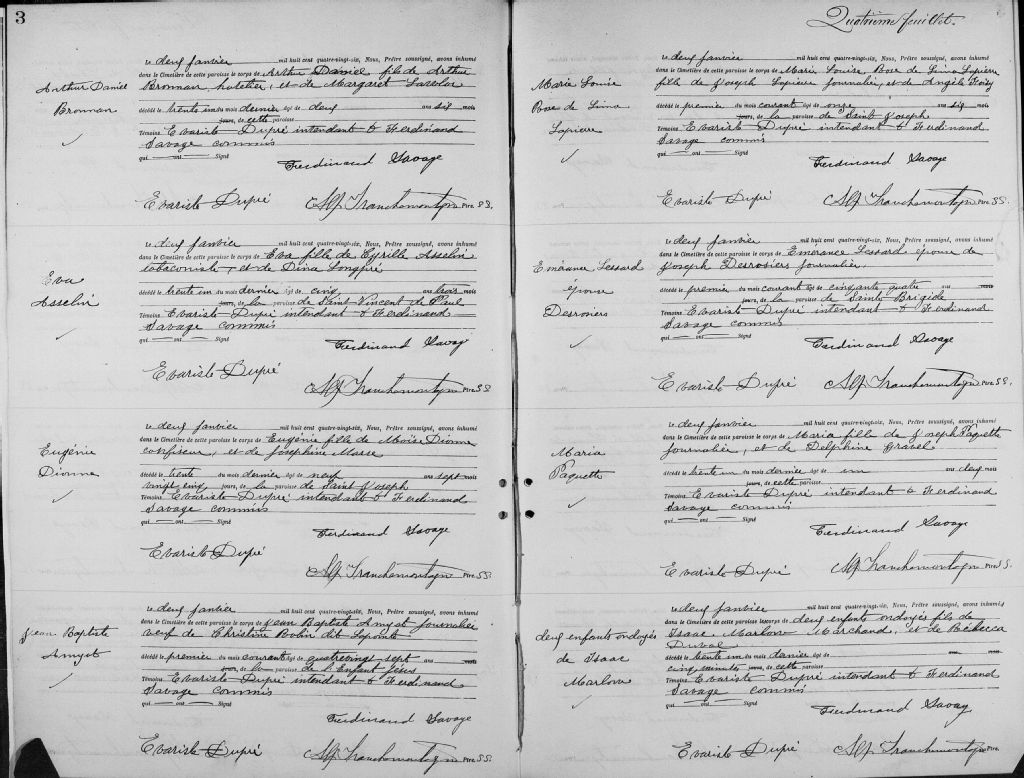 3
Arthur Daniel
Bronnan
Le deux janvier mil huit cent quatre-vingt-six, Nous, Prêtre soussigné, avons inhumé
dans le Cimetière de cette paroisse le corps de Arthur Daniel fils de Arthur
Bronnan hotelier, et de Margaret Lawlor
décédé le trente un du mois dernier âgé de deux ans six mois
jours, de cette paroisse
Témoins Evariste Dupré intendant & Ferdinand
Savage commis
qui ont Signé
Ferdinand Savage
Evariste Dupré Alf Tranchemontagne Ptre. SS.
Eva
Asselin
Le deux janvier mil huit cent quatre-vingt-six, Nous, Prêtre soussigné, avons inhumé
dans le Cimetière de cette paroisse le corps de Eva fille de Cyrille Asselin
tabaconiste, et de Dina Longpré
décédé le trente un du mois dernier âgé de cinq ans trois mois
jours, de la paroisse de Saint Vincent de Paul
Témoins Evariste Dupré intendant & Ferdinand
Savage commis
qui ont Signé
Ferdinand Savage
Evariste Dupré
Alf Tranchemontagne Ptre. SS
Eugénie
Dionne
Le deux janvier mil huit cent quatre-vingt-six, Nous, Prêtre soussigné, avons inhumé
dans le Cimetière de cette paroisse le corps de Eugénie fille de Moise Dionne
confiseur, et de Josephine Masse
décédé le trente du mois dernier âgé de neuf ans sept mois
vingt cinq jours, de la paroisse de Saint Joseph
Témoins Evariste Dupré intendant & Ferdinand
Savage commis
qui ont Signé
Ferdinand Savage
Evariste Dupré
Alf Tranchemontagne Ptre. SS.
Jean Baptiste
Amyot
Le deux janvier mil huit cent quatre-vingt-six, Nous, Prêtre soussigné, avons inhumé
dans le Cimetière de cette paroisse le corps de Jean Baptiste Amyot journalier
veuf de Christine dit Laponte
décédé le premier du mois courant âgé de quatrevingt sept ans mois
jours, de la paroisse de l'Enfant Jésus
Témoins Evariste Dupré intendant & Ferdinand
Savage commis
qui ont Signé
Ferdinand Savage
Evariste Dupré Alf Tranchemontagne Ptre. SS.
Quatrième feuillet.
Marie Louise
Bose de Lima
Lapierre
Le deux janvier mil huit cent quatre-vingt-six, Nous, Prêtre soussigné, avons inhumé
dans le Cimetière de cette paroisse le corps de Marie Louise Bose de Lima Lapierre
fille de Joseph Lapierre journalier, et de Angèle
décédé le premier du mois courant âgé de onze ans six mois
jours, de la paroisse de Saint Joseph
Témoins Evariste Dupré intendant & Ferdinand
Savage commis
qui ont Signé
Ferdinand Savage
Evariste Dupré Alf Tranchemontagne Ptre. SS.
Emérance Lessard
épouse
Desrosiers
Le deux janvier mil huit cent quatre-vingt-six, Nous, Prêtre soussigné, avons inhumé
dans le Cimetière de cette paroisse le corps de Emérance Lessard épouse de
Joseph Desrosiers journalier
décédé le premier du mois courant âgé de cinquante quatre ans mois
jours, de la paroisse de Sainte Brigide
Témoins Evariste Dupré intendant & Ferdinand
Savage commis
qui ont Signé
Ferdinand Savage
Evariste Dupré Alf Tranchemontagne Ptre. SS.
Maria
Paquette
Le deux janvier mil huit cent quatre-vingt-six, Nous, Prêtre soussigné, avons inhumé
dans le Cimetière de cette paroisse le corps de Maria fille de Joseph Paquette
journalier, et de Delphine Gravel
décédé le trente un du mois dernier âgé de un an deux mois
jours, de cette paroisse
Témoins Evariste Dupré intendant & Ferdinand
Savage commis
qui ont Signé
Ferdinand Savage
Evariste Dupré Alf Tranchemontagne Ptre. SS.
deux enfants ondoyés
de Isaac
Marlow
Le deux janvier mil huit cent quatre-vingt-six, Nous, Prêtre soussigné, avons inhumé
dans le Cimetière de cette paroisse le corps de deux enfants ondoyés fils de
Isaac Marlow Marchand, et de Rebecca
Duval
décédé le trente un du mois dernier âgé de ans mois
cinq minutes jours, de cette paroisse
Témoins Evariste Dupré intendant & Ferdinand
Savage commis
qui ont Signé
Ferdinand Savage
Evariste Dupré Alf Tranchemontagne Ptre. SS.